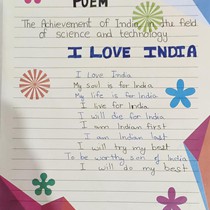 POEM
The Achievement of India in the field
of science and technology
I LOVE INDIA
I Love India
My soul is for India
My life is for India
I live for India
I will die for India
I am Indian first
I am Indian last
I will try my best
To be worthy son of India
I will do my best